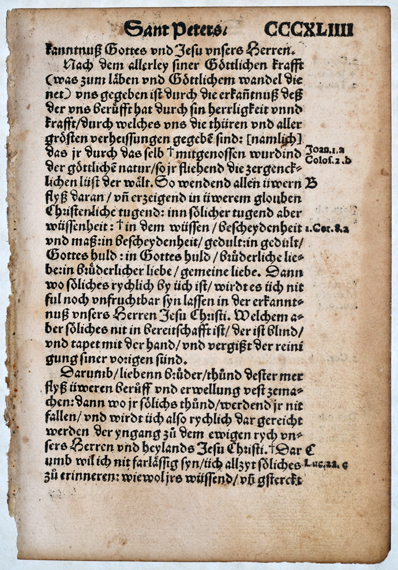 Sant Peters. CCCXLIIII
kanntnuß Gottes vnd Jesu vnsers Herren.
Nach dem allerley siner Göttlichen krafft
(was zum låben vnd Göttlichem wandel die
net) vns gegeben ist durch die erkañtnuß deß
der vns berüfft hat durch sin herrligkeit vnnd
krafft/durch welches vns die thüren vnd aller
grösten verheissungen gegebē sind: [namlich]
das jr durch das selb † mitgenossen wurdind
Joan.1.a
Colos.2.b
der göttlichē natur/so jr fliehend die zergenck-
lichen lüst der wält. So wendend allein üwern
B
flyß daran/ vñ erzeigend in üwerem glouben
Christenliche tugend: inn sölicher tugend aber
wüssenheit: † in dem wüssen/ bescheydenheit
1.Cor.8.a
vnd maß: in bescheydenheit/ gedult: in gedult/
Gottes huld: in Gottes huld/ brüderliche lie-
be: in brüderlicher liebe/ gemeine liebe. Dann
wo söliches rychlich by üch ist/ wirdt es üch nit
ful noch vnfruchtbar syn lassen in der erkannt-
nuß vnsers Herren Jesu Christi. Welchem a-
ber söliches nit in bereitschafft ist/ der ist blind/
vnd tapet mit der hand/ vnd vergißt der reini
gung siner vorigen sünd.
Darumb/ liebenn brüder/ thünd dester mer
flyß üweren berüff vnd erwellung vest zema-
chen: dann wo jr sölichs thünd/ werdend jr nit
fallen/ vnd wirdt üch also rychlich dar gereicht
werden der yngang zů dem ewigen rych vn-
sers Herren vnd heylands Jesu Christi. † Dar
C
umb wil ich nit farlässig syn/ üch allzyt söliches
Luc.22.c
zů erinneren: wiewol jrs wüssend/ vñ gsterckt